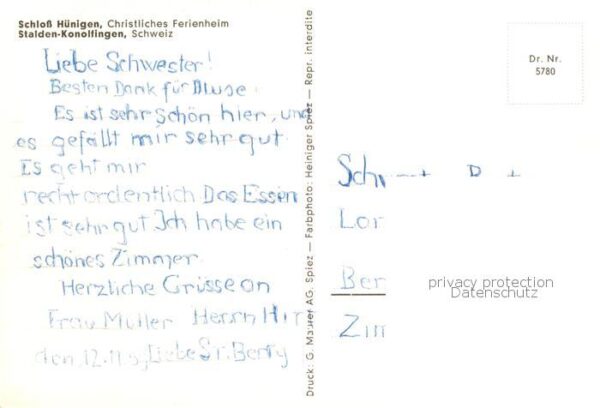 Schloß Hünigen, Christliches Ferienheim
Stalden-Konolfingen, Schweiz
Liebe Schwester!
Besten Dank für Bluse.
Es ist sehr schön hier, und
es gefällt mir sehr gut.
Es geht mir
recht ordentlich Das Essen
ist sehr gut Ich habe ein
schönes Zimmer
Herzliche Grüsse an
Frau Müller Herrn Hir
den 12.11.5 Liebe Sr. Berty
Druck: G. Maurer AG. Spiez — Farbphoto: Heiniger Spiez — Repr. interdite
Dr. Nr.
5780
Schw
Lor
Ber
Zim
privacy protection
Datenschutz